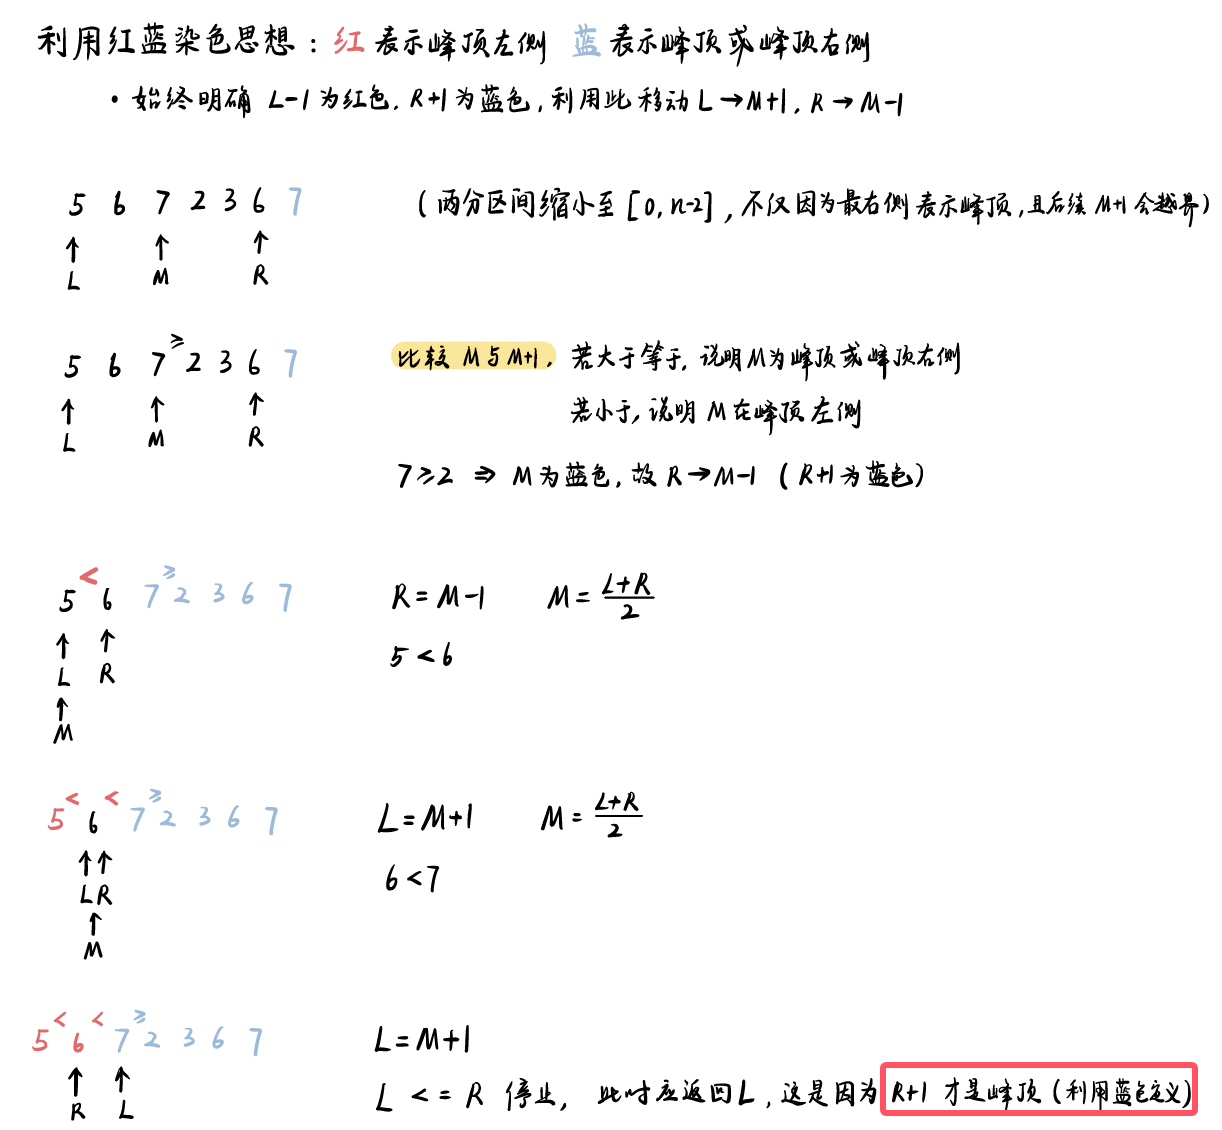 利用红蓝染色思想：红 表示峰顶左侧 蓝 表示峰顶或峰顶右侧
· 始终明确 L-1 为红色, R+1 为蓝色, 利用此移动 L→M+1, R→M-1
5 6 7 2 3 6 7 (两分区间缩小至 [0, n-2], 不仅因为最右侧表示峰顶, 且后续 M+1 会越界)
↑ ↑ ↑
L M R
5 6 7 ≥ 2 3 6 7 比较 M 与 M+1, 若大于等于, 说明M为峰顶或峰顶右侧
↑ ↑ ↑ 若小于, 说明 M 在峰顶左侧
L M R
7≥2 ⇒ M 为蓝色, 故 R→M-1 ( R+1 为蓝色)
5 < 6 7 ≥ 2 3 6 7 R = M-1 M = L+R / 2
↑ ↑ 5 < 6
L R
↑
M
5 < 6 < 7 ≥ 2 3 6 7 L = M+1 M = L+R / 2
↑↑ 6 < 7
L R
↑
M
5 < 6 < 7 ≥ 2 3 6 7 L = M+1
↑ ↑ L <= R 停止, 此时应返回L, 这是因为 R+1 才是峰顶 (利用蓝色定义)
R L